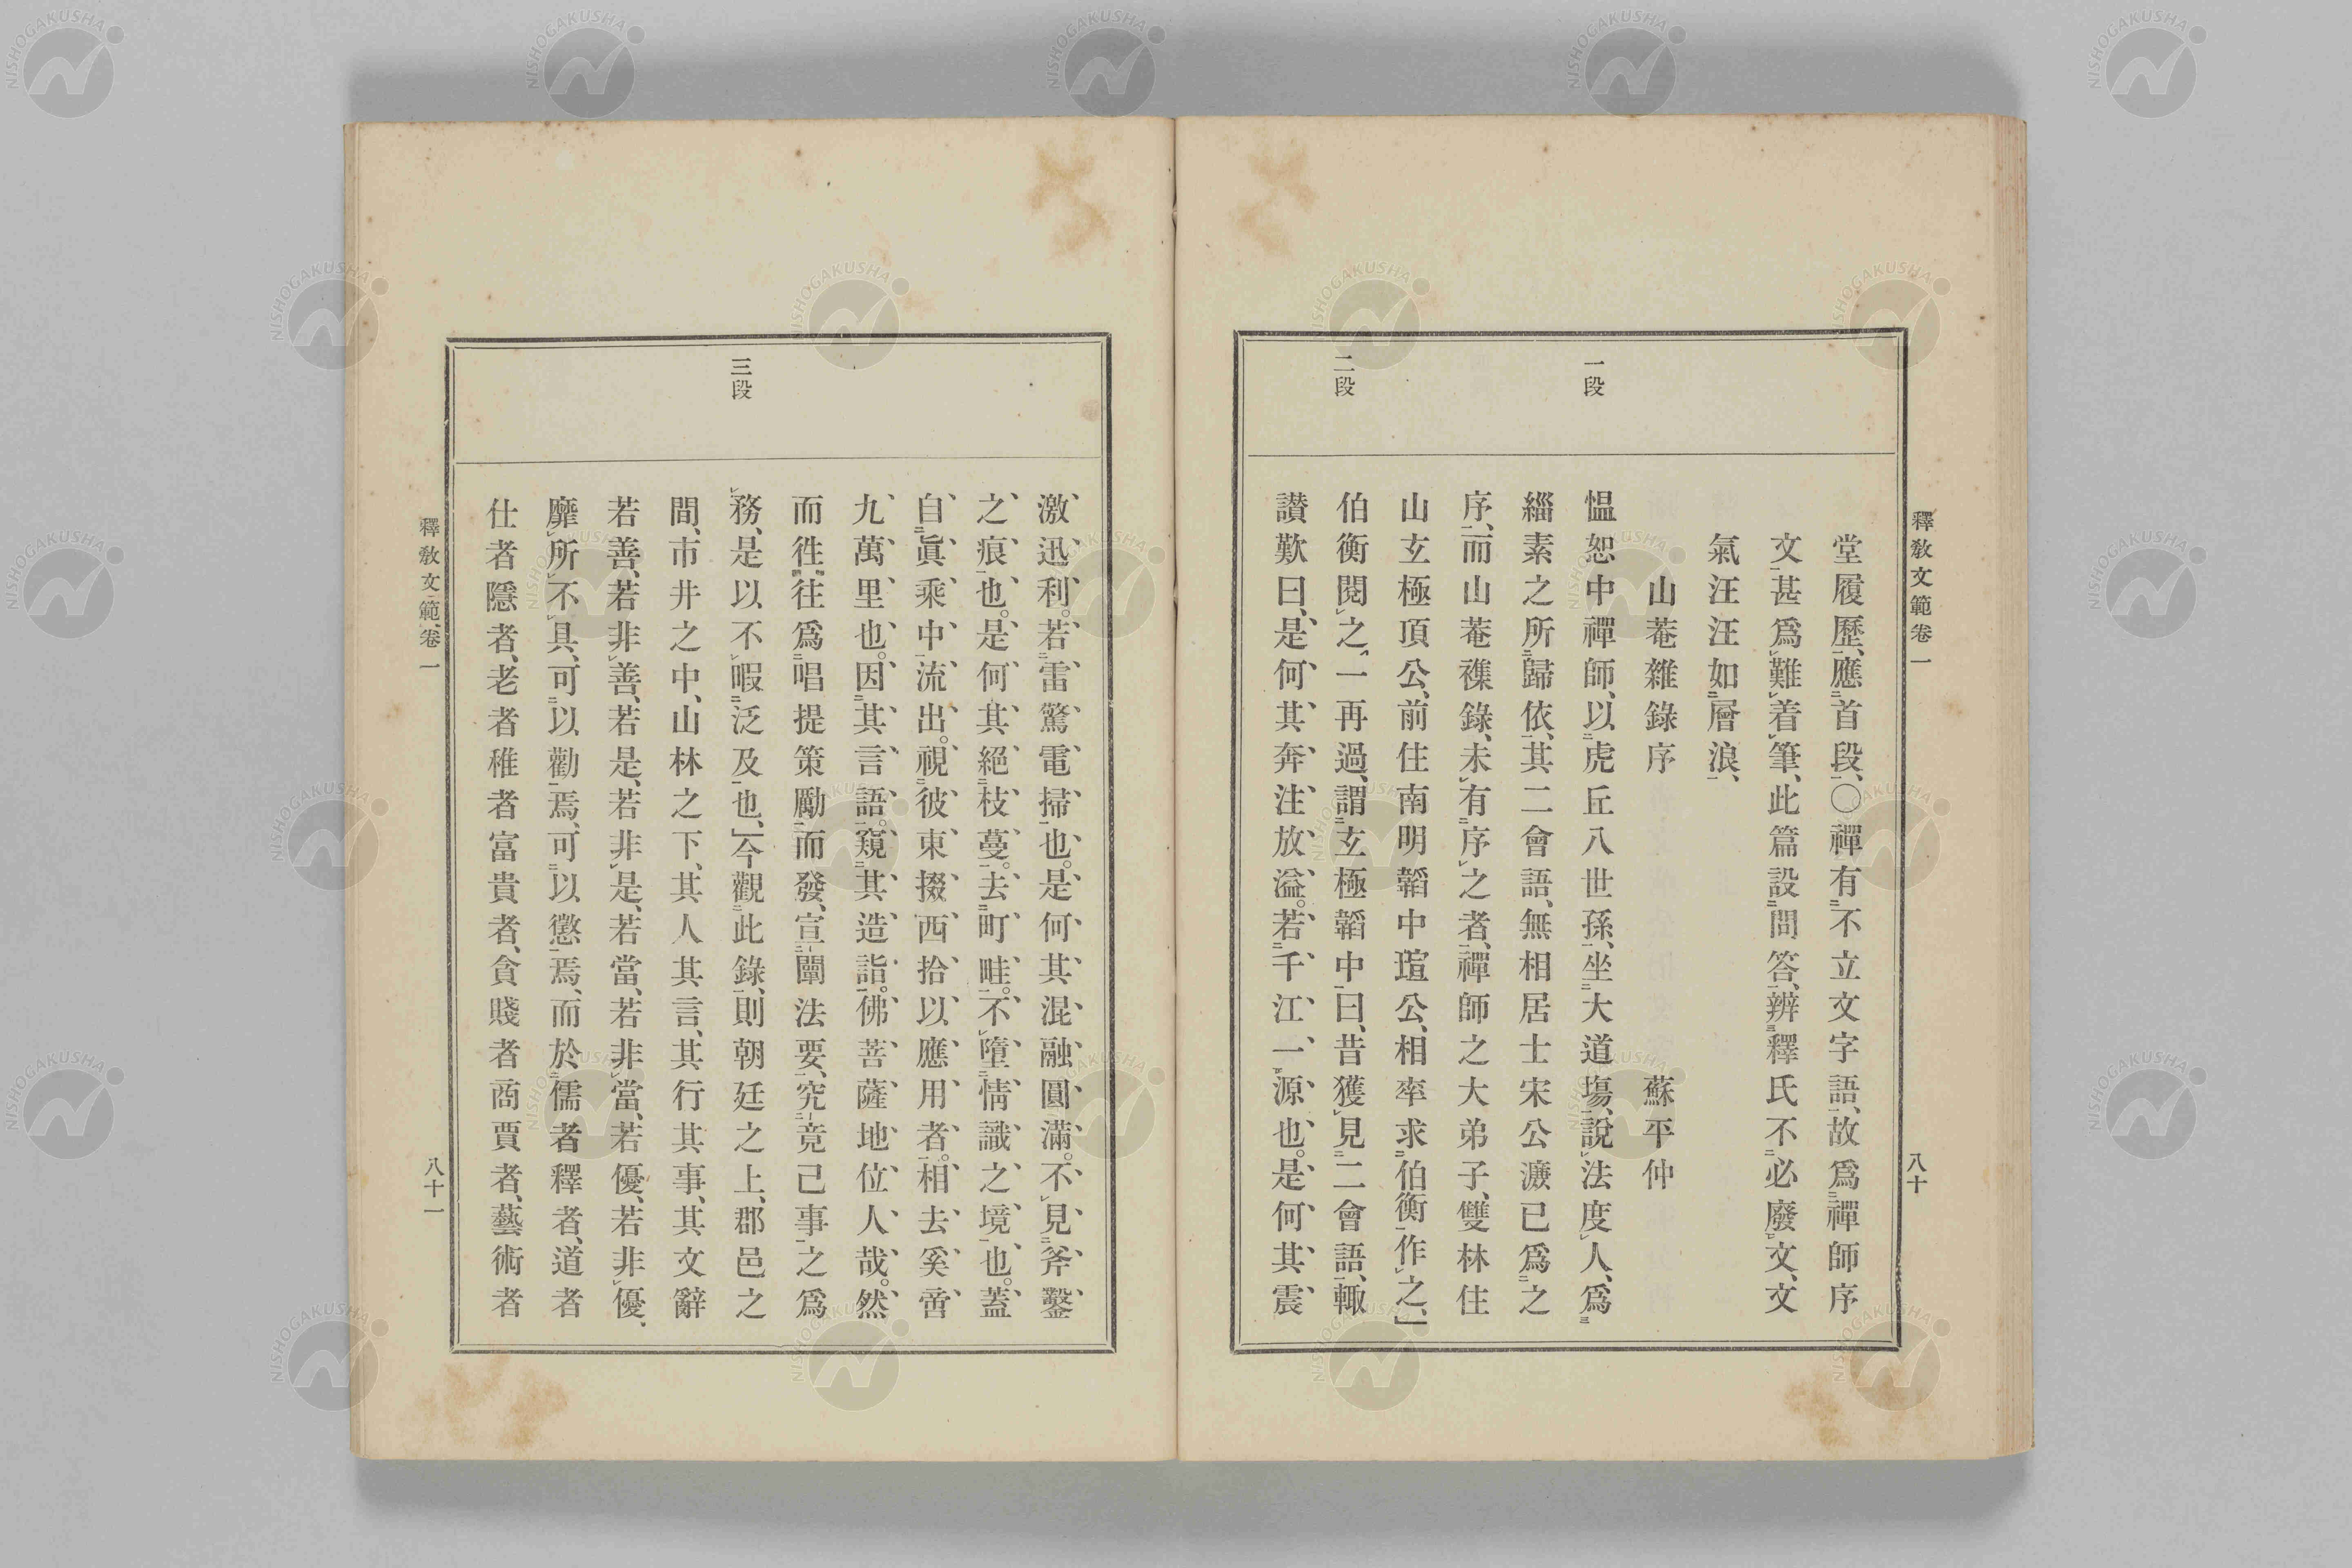 釋敎文範卷一
八十
堂履歷、應首段、〇禪有不立文字語、故爲禪師序
文甚爲難着筆、此篇設問答、辨釋氏不必廢文、文
氣汪汪如層浪、
山菴雜錄序 蘇平仲
一段
愠恕中禪師、以虎丘八世孫、坐大道塲、說法度人、爲
緇素之所歸依、其二會語、無相居士宋公濂已爲之
序、而山菴襍錄、未有序之者、禪師之大弟子、雙林住
山玄極頂公、前住南明韜中瑄公、相率求伯衡作之、」
二段
伯衡閱之、一再過、謂玄極韜中曰、昔獲見二會語、輙
讃歎曰、是何其奔注放溢。若千江一源也。是何其震
激迅利。若雷驚電掃也。是何其混融圓滿。不見斧鑿
之痕也。是何其絕枝蔓。去町畦。不墮情識之境也。蓋
自眞乘中流出。視彼東掇西拾以應用者。相去奚啻
九萬里也。因其言語。窺其造詣。佛菩薩地位人哉。然
而徃徃爲唱提策勵而發、宣闡法要、究竟己事之爲
三段
務、是以不暇泛及也、」今觀此錄、則朝廷之上、郡邑之
間、市井之中、山林之下、其人其言、其行其事、其文辭
若善、若非善、若是、若非是、若當、若非當、若優、若非優、
靡所不具、可以勸焉、可以懲焉、而於儒者釋者、道者
仕者隱者、老者稚者富貴者、貧賤者商賈者、藝術者
釋敎文範卷一
八十一
NISHOGAKUSHA